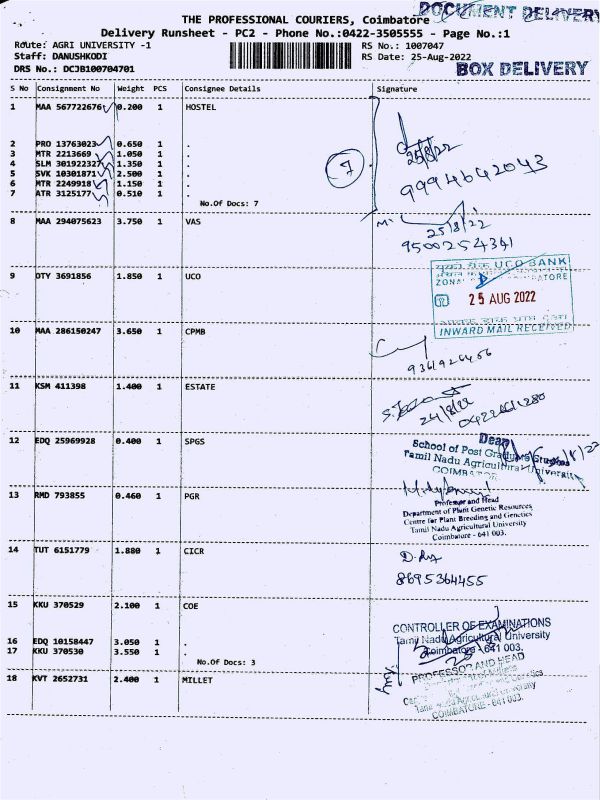 THE PROFESSIONAL COURIERS, Coimbatore
DOCUMENT DELIVERY
Delivery Runsheet - PC2 - Phone No.:0422-3505555 - Page No.:1
Route: AGRI UNIVERSITY -1
RS No.: 1007047
Staff: DANUSHKODI
RS Date: 25-Aug-2022
DRS No.: DCJB100704701
BOX DELIVERY
S No Consignment No Weight PCS Consignee Details Signature
1 MAA 567722676 0.200 1 HOSTEL
2 PRO 13763023 0.650 1 .
25/8/22
3 MTR 2213669 1.050 1 .
4 SLM 301922327 1.350 1 .
7
5 SVK 10301871 2.500 1 .
6 MTR 2249918 1.150 1 .
9994642043
7 ATR 3125177 0.510 1 .
No.Of Docs: 7
8 MAA 294075623 3.750 1 VAS
25/8/22
9500254341
9 DTY 3691856 1.850 1 UCO
UCO BANK
25 AUG 2022
INWARD MAIL RECEIVED
10 MAA 286150247 3.650 1 CPMB
11 KSM 411398 1.400 1 ESTATE
24/8/22
12 EDQ 25969928 0.400 1 SPGS
Dean
School of Post Graduate Studies
Tamil Nadu Agricultural University
COIMBATORE
13 RMD 793855 0.460 1 PGR
Professor and Head
Department of Plant Genetic Resources
Centre for Plant Breeding and Genetics
Tamil Nadu Agricultural University
Coimbatore - 641 003.
14 TUT 6151779 1.880 1 CICR
8695364455
15 KKU 370529 2.100 1 COE
CONTROLLER OF EXAMINATIONS
Tamil Nadu Agricultural University
Coimbatore - 641 003.
16 EDQ 10158447 3.050 1 .
17 KKU 370530 3.550 1 .
No.Of Docs: 3
PROFESSOR AND HEAD
18 KVT 2652731 2.400 1 MILLET
COIMBATORE - 641 003.